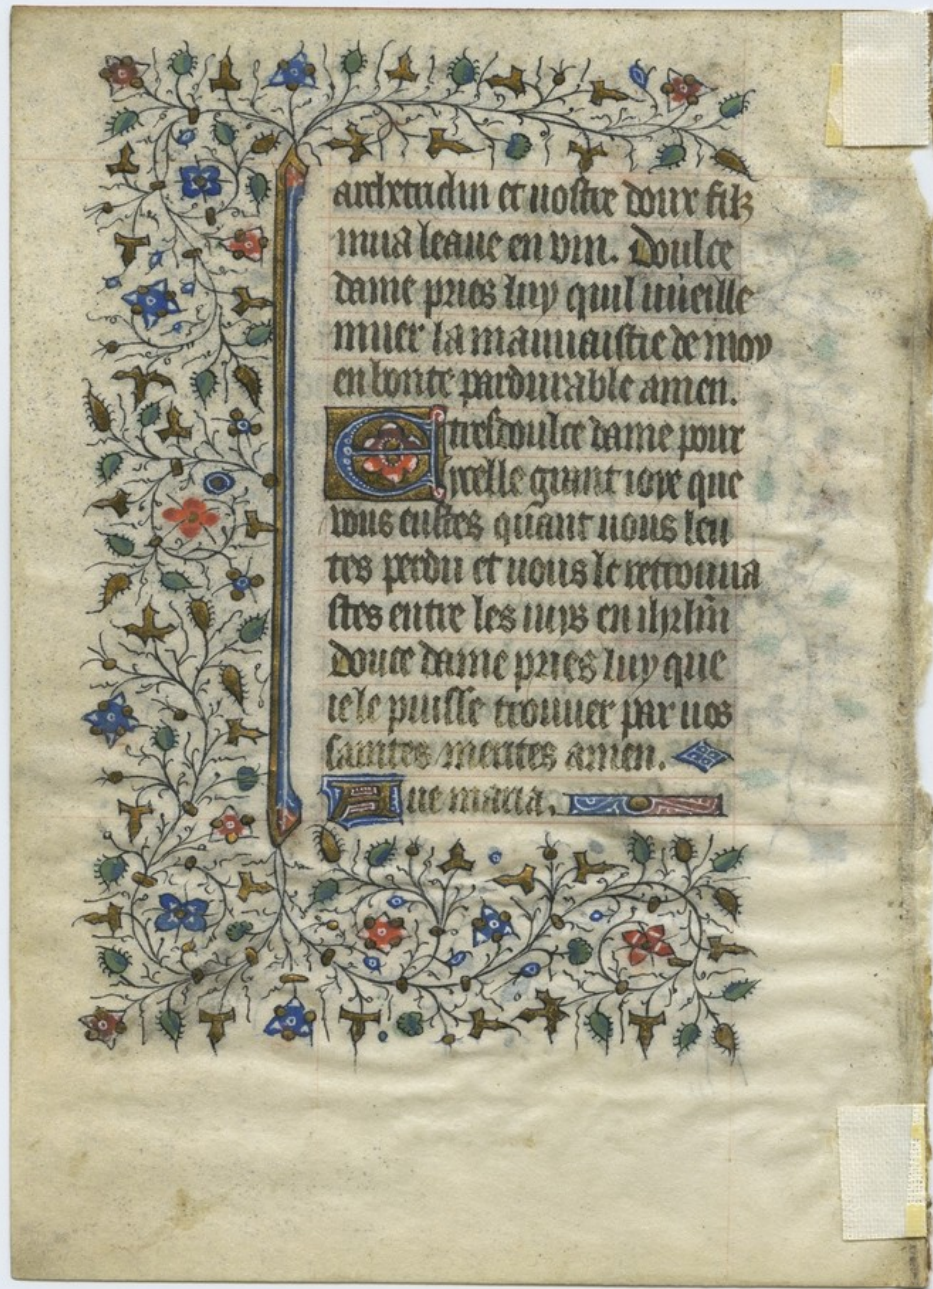 archetriclin et vostre doux filz
mua leaue en vin. Doulce
dame pries luy quil mueille
muer la mauuaistie de moy
en bonte pardurable amen.
E tresdoulce dame pour
ycelle grant ioye que
vous eustes quant uous leu
tes perdu et uous le retrouua
stes entre les iuys en ihrlm
Douce dame pries luy que
ie le puisse trouuer par uos
saintes merites amen.
Aue maria.